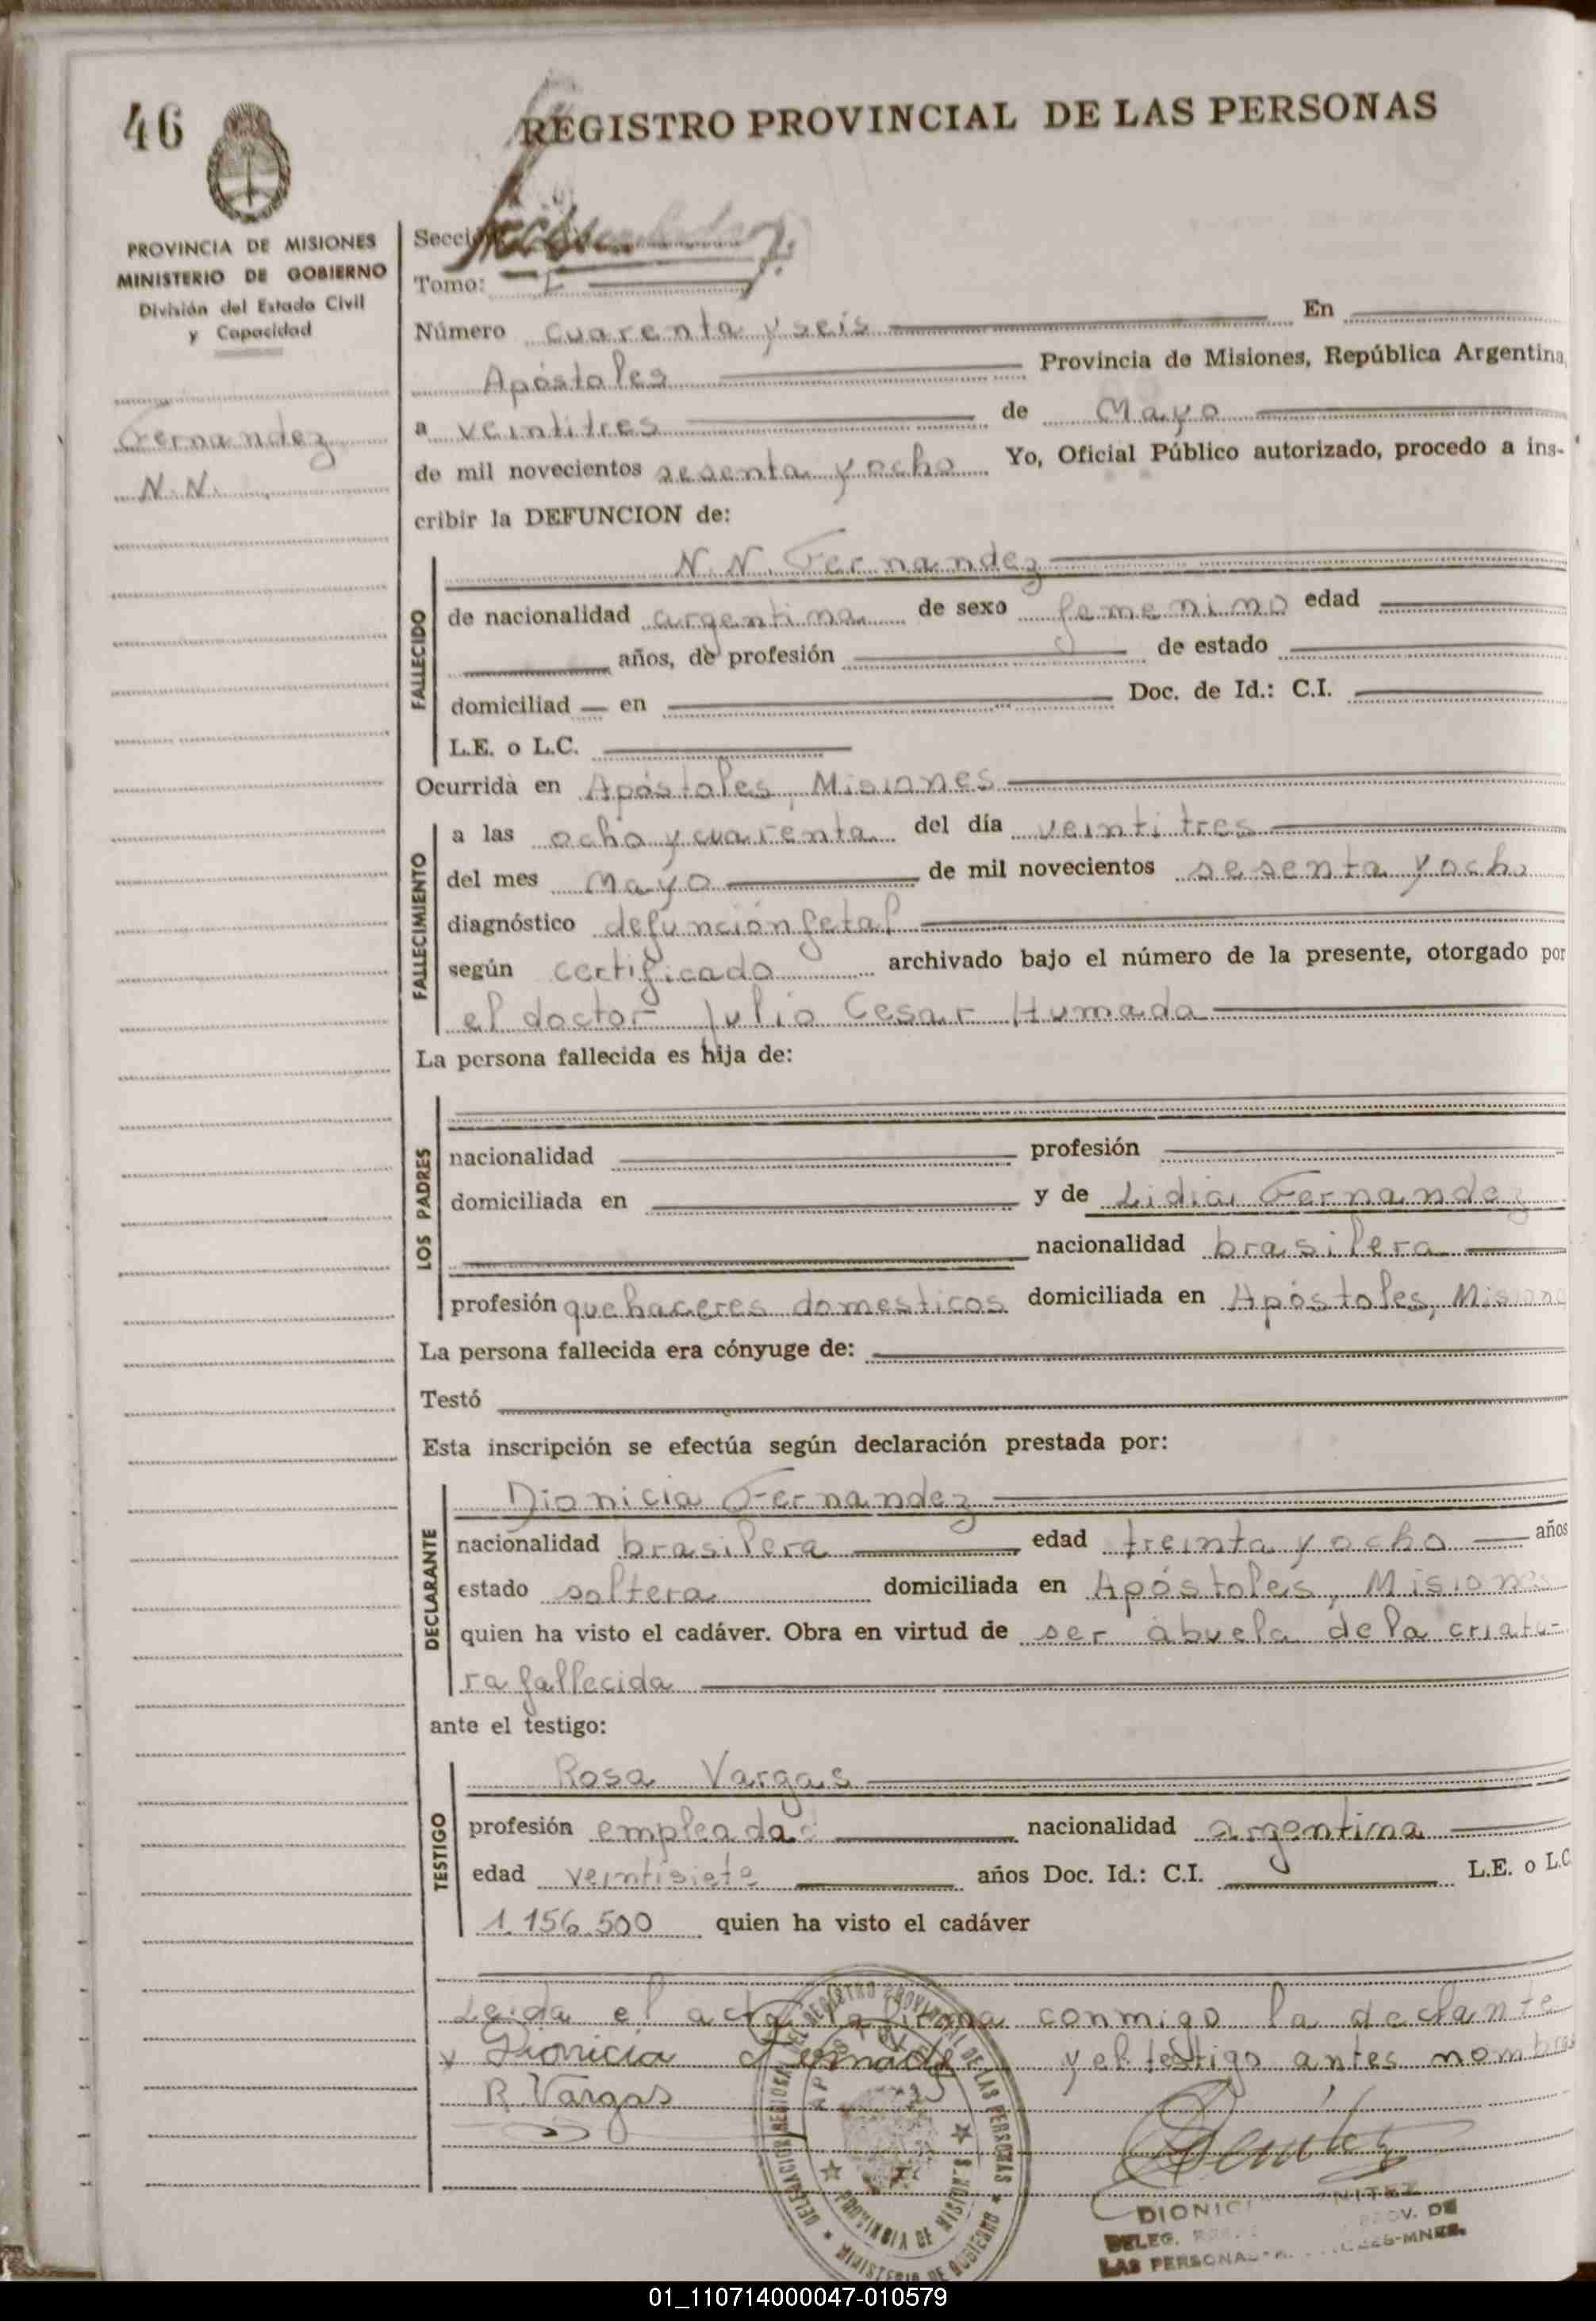 46
REGISTRO PROVINCIAL DE LAS PERSONAS
PROVINCIA DE MISIONES
MINISTERIO DE GOBIERNO
División del Estado Civil
y Capacidad
Fernandez
N.N.
Secci
Tomo: I
Número cuarenta y seis En
Apóstoles Provincia de Misiones, República Argentina,
a veintitres de Mayo
de mil novecientos sesenta y ocho Yo, Oficial Público autorizado, procedo a ins-
cribir la DEFUNCION de:
FALLECIDO
N.N. Fernandez
de nacionalidad argentina de sexo femenino edad
años, de profesión de estado
domiciliad en Doc. de Id.: C.I.
L.E. o L.C.
Ocurrida en Apóstoles, Misiones
FALLECIMIENTO
a las ocho y cuarenta del día veintitres
del mes Mayo de mil novecientos sesenta y ocho
diagnóstico defunción fetal
según certificado archivado bajo el número de la presente, otorgado por
el doctor Julio Cesar Humada
La persona fallecida es hija de:
LOS PADRES
nacionalidad profesión
domiciliada en y de Lidia Fernandez
nacionalidad brasilera
profesión quehaceres domesticos domiciliada en Apóstoles, Misione
La persona fallecida era cónyuge de:
Testó
Esta inscripción se efectúa según declaración prestada por:
DECLARANTE
Dionicia Fernandez
nacionalidad brasilera edad treinta y ocho años
estado soltera domiciliada en Apóstoles, Misiones
quien ha visto el cadáver. Obra en virtud de ser abuela de la criatu-
ra fallecida
ante el testigo:
TESTIGO
Rosa Vargas
profesión empleada nacionalidad argentina
edad veintisiete años Doc. Id.: C.I. L.E. o L.C
1.156.500 quien ha visto el cadáver
Leida el acta la firma conmigo la declante
y Dionicia Fernade y el testigo antes nombrad
R. Vargas
Benitez
DELEGACION REGIONAL DEL REGISTRO PROVINCIAL DE LAS PERSONAS
MINISTERIO DE GOBIERNO
PROVINCIA DE MISIONES
DIONICI NITEZ
DELEG. PROV. DE
LAS PERSONAS -MNES.
01_110714000047-010579